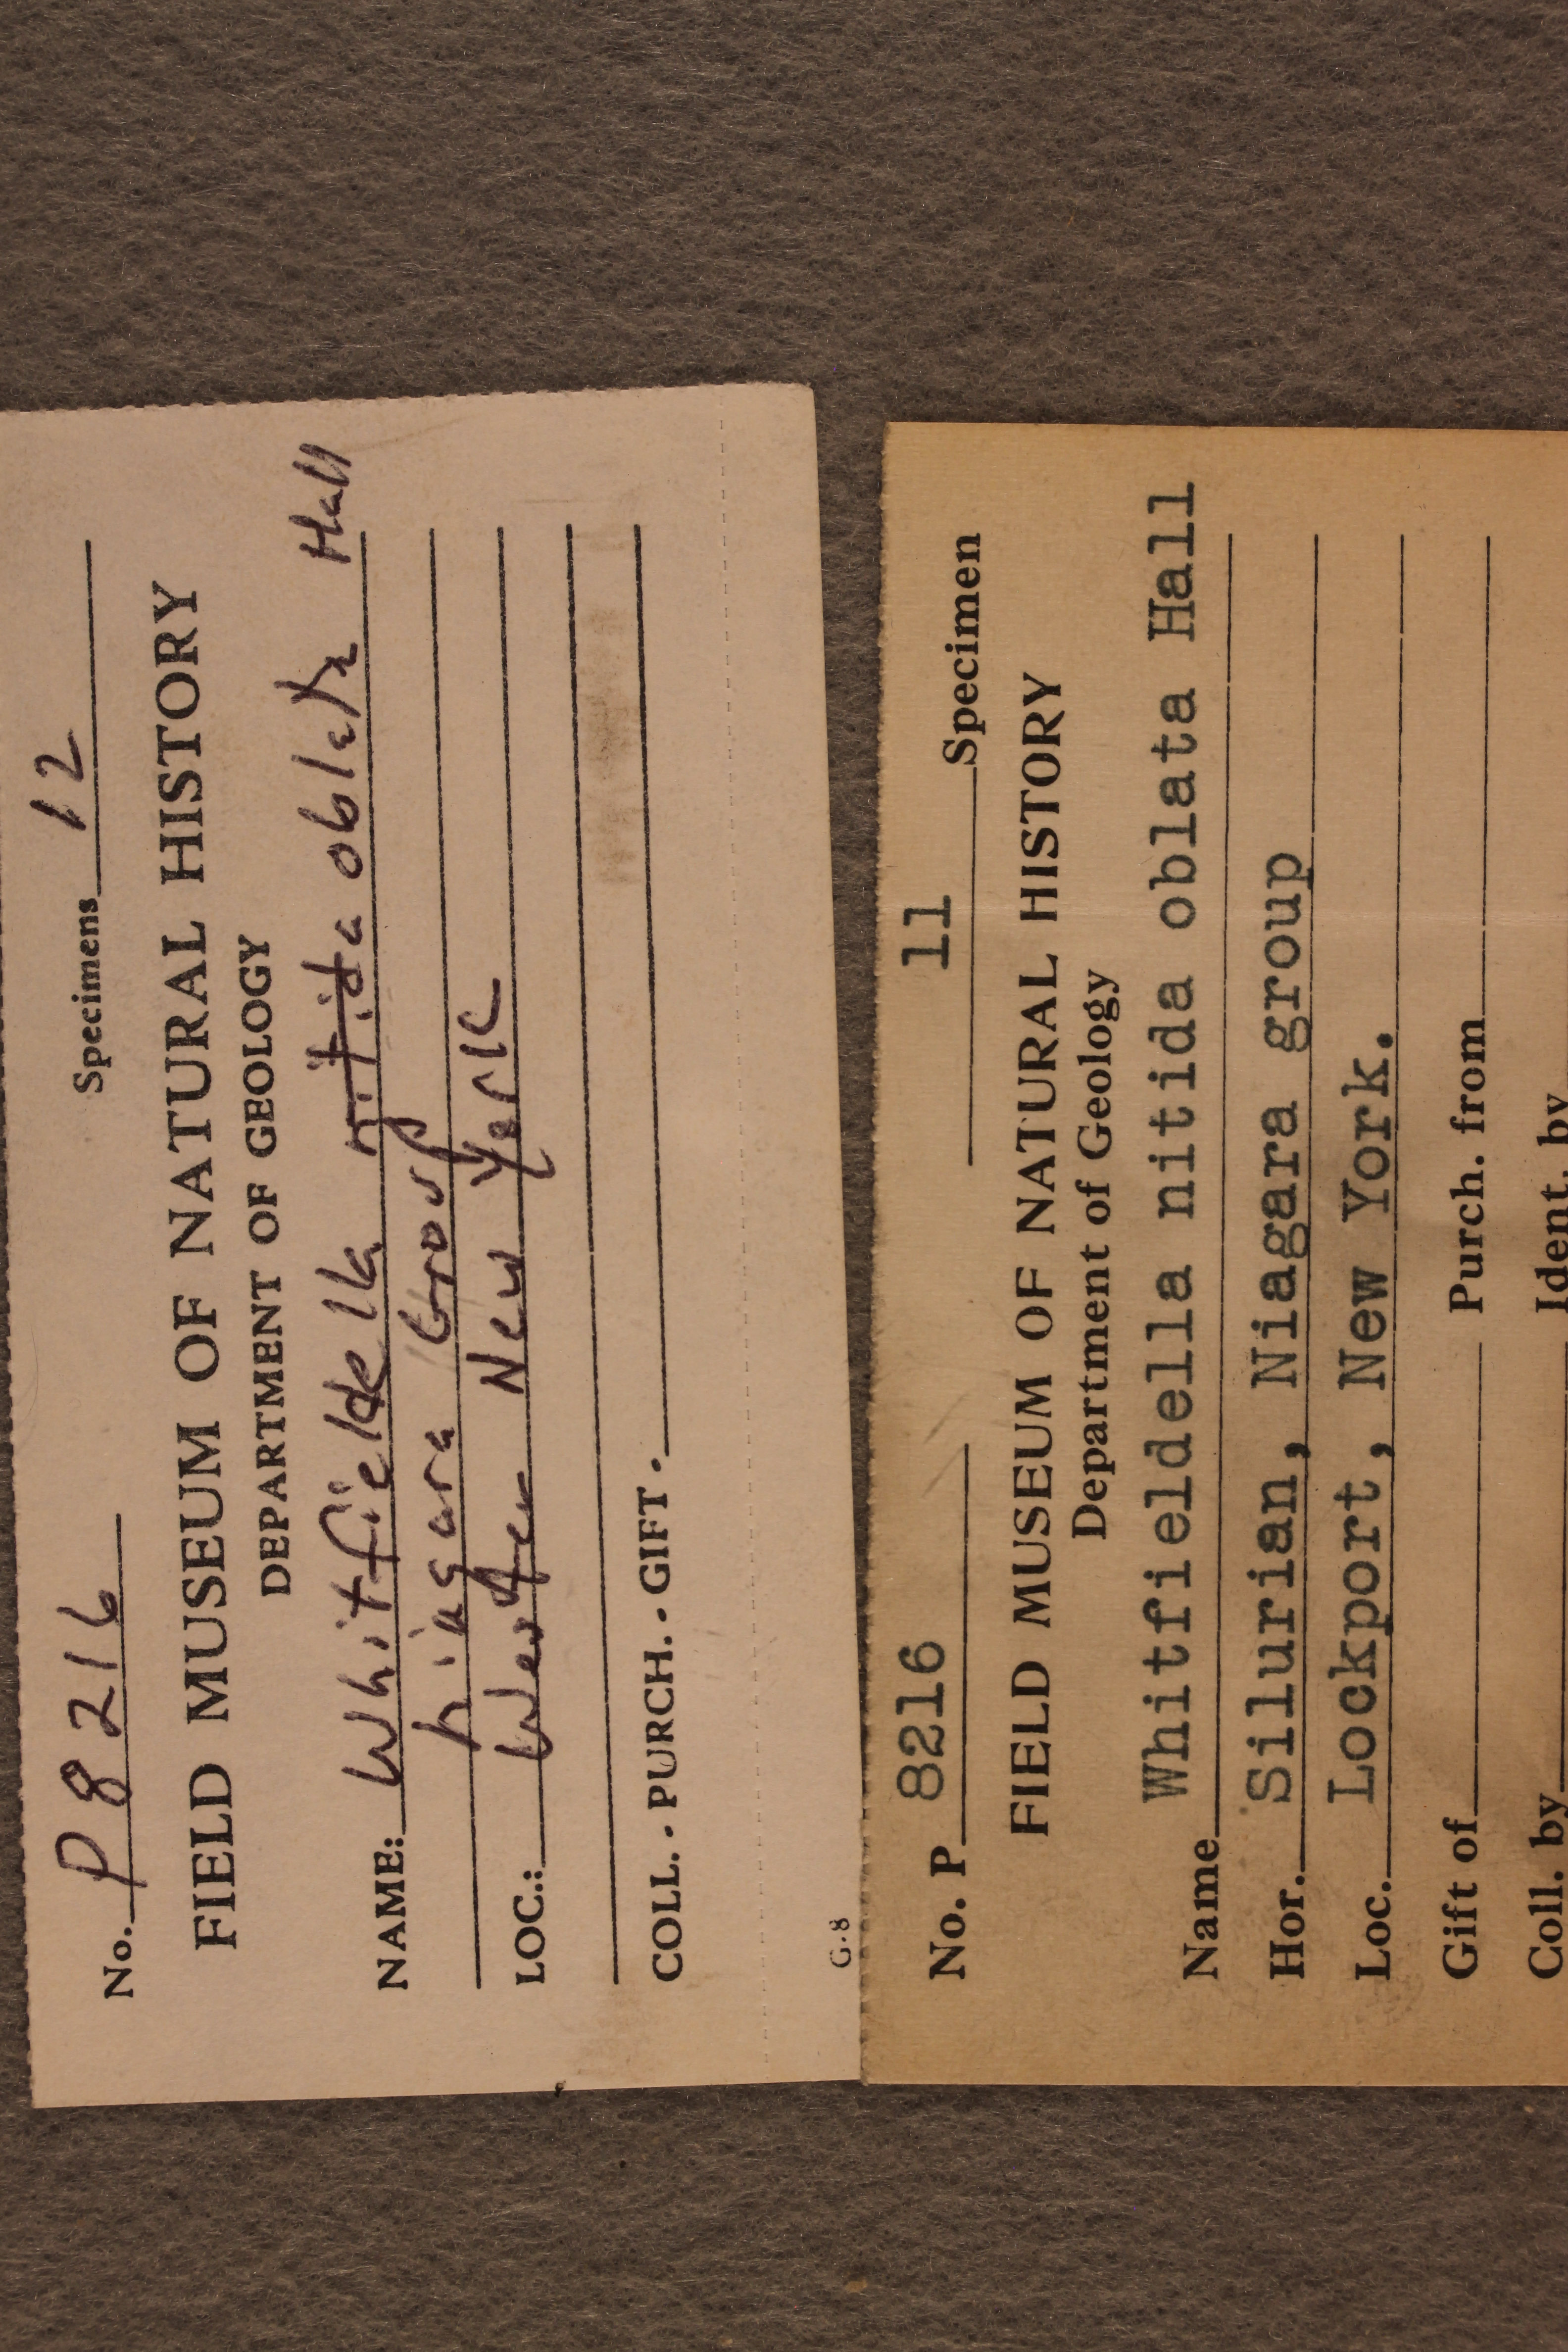 No. P 8216 Specimens 12
FIELD MUSEUM OF NATURAL HISTORY
DEPARTMENT OF GEOLOGY
NAME: Whitfieldella nitida oblata Hall
Niagara Group
LOC.: New York
COLL. - PURCH. - GIFT -
G-8
No. P 8216 11 Specimen
FIELD MUSEUM OF NATURAL HISTORY
Department of Geology
Name Whitfieldella nitida oblata Hall
Hor. Silurian, Niagara group
Loc. Lockport, New York.
Gift of Purch. from
Coll. by Ident. by